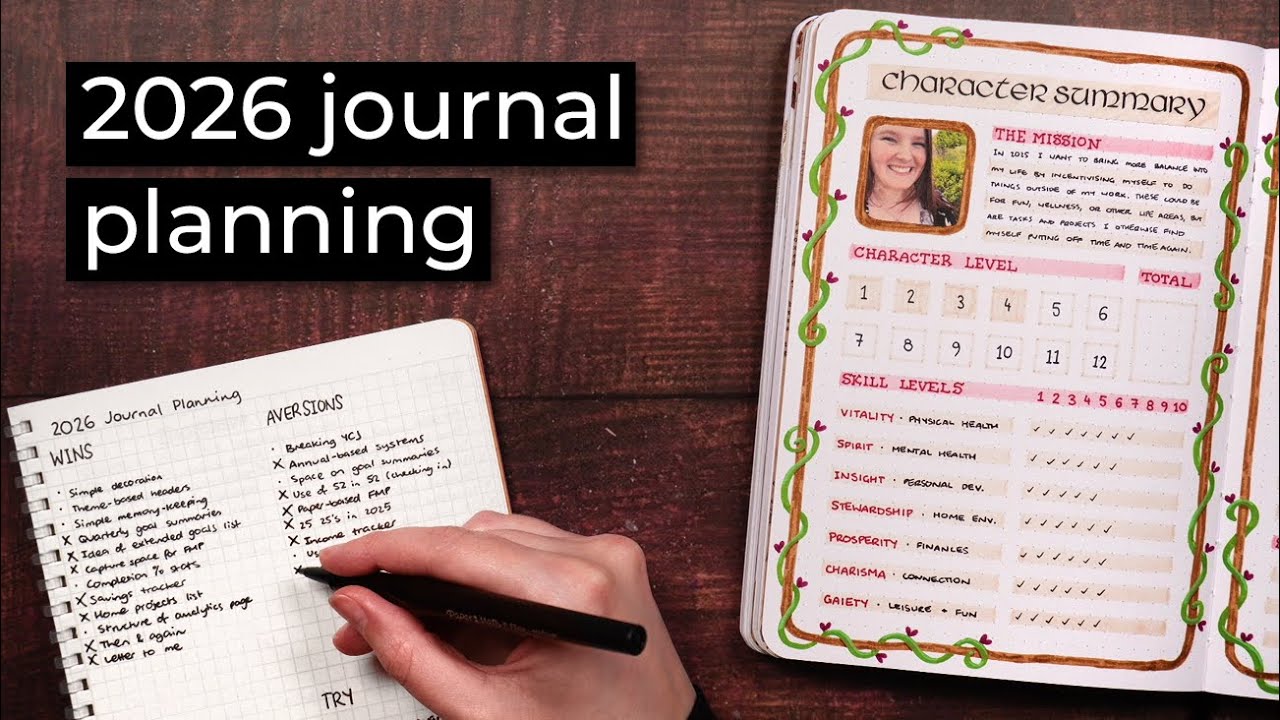 2026 journal
planning
2026 Journal Planning
WINS
· Simple decoration
· Theme-based headers
· Simple memory-keeping
X Quarterly goal summaries
X Idea of extended goals list
X Capture space for FMP
· Completion % stats
X Savings tracker
X Home projects list
· Structure of analytics page
X Then & again
X Letter to me
AVERSIONS
· Breaking YCJ
X Annual-based systems
· Space on goal summaries
X Use of 52 in 52 (checking in)
X Paper-based FMP
X 25 25's in 2025
X Income tracker
TRY
CHARACTER SUMMARY
THE MISSION
IN 2025 I WANT TO BRING MORE BALANCE INTO
MY LIFE BY INCENTIVISING MYSELF TO DO
THINGS OUTSIDE OF MY WORK. THESE COULD BE
FOR FUN, WELLNESS, OR OTHER LIFE AREAS, BUT
ARE TASKS AND PROJECTS I OTHERWISE FIND
MYSELF PUTTING OFF TIME AND TIME AGAIN.
CHARACTER LEVEL
TOTAL
1 2 3 4 5 6
7 8 9 10 11 12
SKILL LEVELS 1 2 3 4 5 6 7 8 9 10
VITALITY · PHYSICAL HEALTH ✓ ✓ ✓ ✓ ✓ ✓ ✓
SPIRIT · MENTAL HEALTH ✓ ✓ ✓ ✓ ✓ ✓
INSIGHT · PERSONAL DEV. ✓ ✓ ✓ ✓ ✓
STEWARDSHIP · HOME ENV. ✓ ✓ ✓ ✓ ✓ ✓
PROSPERITY · FINANCES ✓ ✓ ✓ ✓ ✓ ✓
CHARISMA · CONNECTION ✓ ✓ ✓ ✓ ✓ ✓
GAIETY · LEISURE + FUN ✓ ✓ ✓ ✓ ✓ ✓